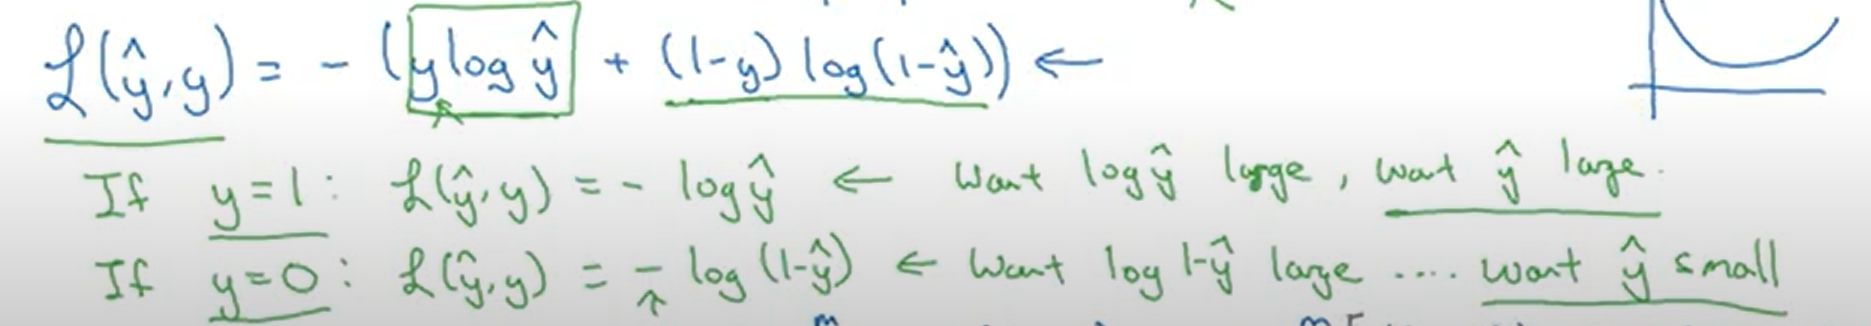 ℒ(ŷ,y) = - (y log ŷ + (1-y) log(1-ŷ)) ←
If y=1: ℒ(ŷ,y) = - log ŷ ← Want log ŷ large, want ŷ large.
If y=0: ℒ(ŷ,y) = - log(1-ŷ) ← Want log 1-ŷ large .... want ŷ small